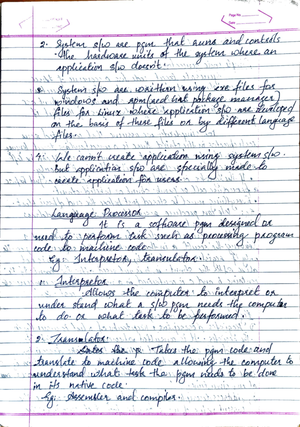 2. System s/w are pgm that runs and controls
the hardware units of the system where an
application s/w doesn't.
3. System s/w are written using exe files for
windows and rpm(red hat package manager)
files for Linux where application s/w are developed
on the basis of these files or by different language
files.
4. We cann't create application using system s/w
but application s/w are specially made to
create application for users.
Language Processor
It is a software pgm designed or
used to perform task such as processing program
code to machine code.
Eg: Interpretor, translator.
1. Interpretor
Allows the computer to interpret or
under stand what a s/w pgm needs the computer
to do or what task to be performed.
2. Translator
Takes the pgm code and
translate to machine code allowing the computer to
understand what task the pgm needs to be done
in its native code.
Eg: Assembler and compiler.